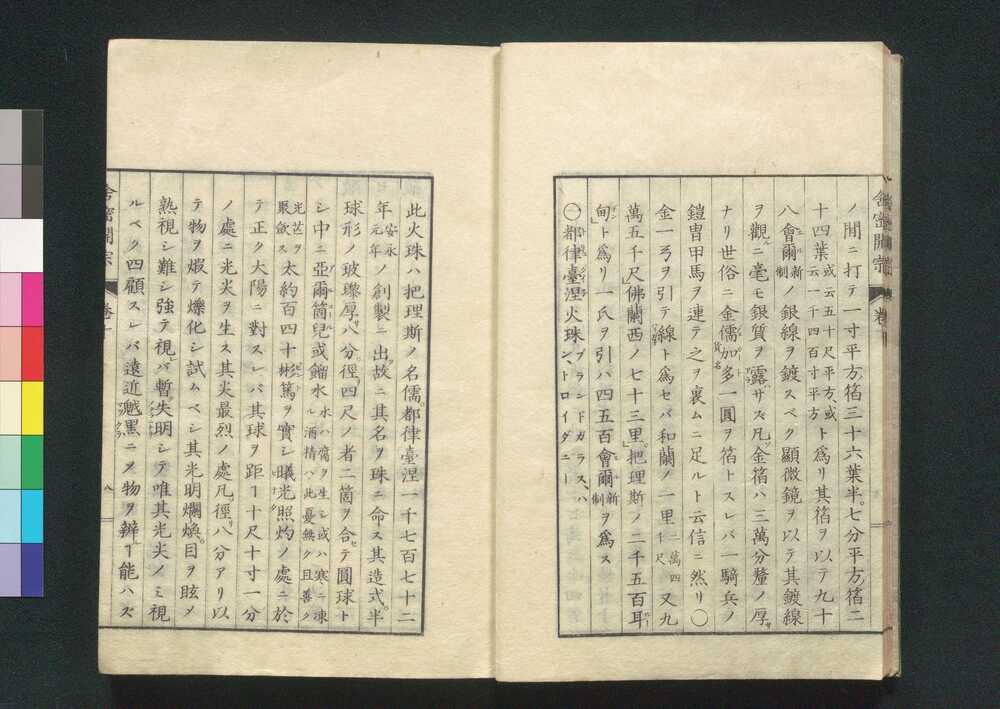 舎密開宗
巻十
ノ間ニ打テ一寸平方箔三十六葉半。七分平方箔二
十四葉或云五十尺平方、或云一千四百寸平方ト爲リ其箔ヲ以テ九十
八會爾新制ノ銀線ヲ鍍スベク顯微鏡ヲ以テ其鍍線
ヲ觀ルニ毫モ銀質ヲ露サズ凡ソ金箔ハ三萬分釐ノ厚サ
ナリ世俗ニ金儒加多貨名一圓ヲ箔トスレバ一騎兵ノ
鎧冑甲馬ヲ連テ之ヲ裹ムニ足ルト云信ニ然リ〇
金一弓ヲ引テ線ト爲セバ和蘭ノ一里二萬四千尺又九
萬五千尺佛蘭西ノ七十三里。把理斯ノ二千五百耳
甸ト爲リ一氏ヲ引バ四五百會爾新制ヲ爲ス
㊀都律臺涅火珠ブランドガラス、ハン、トロイダニー
此火珠ハ把理斯ノ名儒。都律臺涅一千七百七十二
年安永元年ノ創製ニ出故ニ其名ヲ珠ニ命ス其造式。半
球形ノ玻瓈厚八分。徑四尺ノ者二箇ヲ合セテ圓球ト
シ中ニ亞爾箇兒或餾水水ハ腐ヲ生シ或ハ寒ニ凍ル酒精ハ此憂無ク且善ク
光芒ヲ聚歛ス太約百四十彬篤ヲ實シ曦光照灼ノ處ニ於
テ正ク大陽ニ對スレバ其球ヲ距ー十尺十寸一分
ノ處ニ光尖ヲ生ス其尖最烈ノ處凡徑八分アリ以
テ物ヲ煆テ爍化シ試ムベシ其光明爛煥。目ヲ眩メ
熟視シ難シ強テ視レバ暫失明シテ唯其光尖ノミ視
ルベク四顧スレバ遠近黑ニヲ物ヲ辨ー能ハズ
舎密開宗
巻十
八